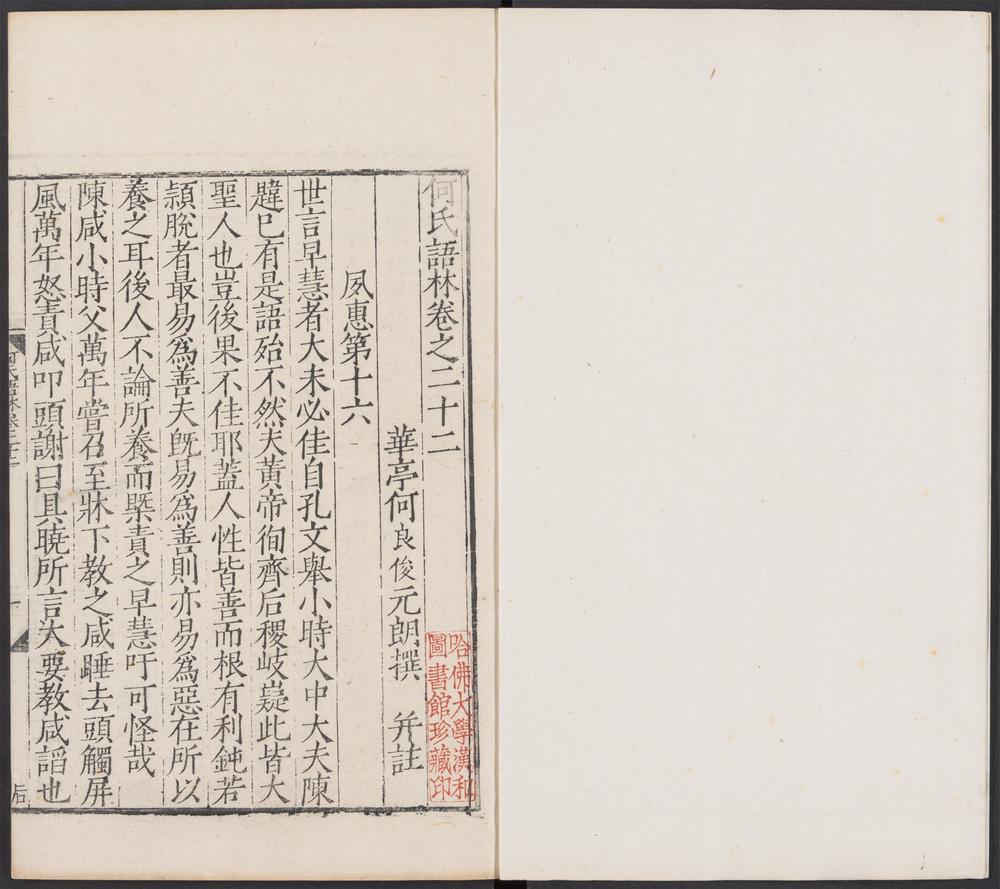 何氏語林卷之二十二
華亭何良俊元朗撰　并註
夙惠第十六
世言早慧者大未必佳自孔文舉小時大中大夫陳
韙巳有是語殆不然夫黃帝徇齊后稷岐嶷此皆大
聖人也豈後果不佳耶蓋人性皆善而根有利鈍若
頴脫者最易爲善夫旣易爲善則亦易爲惡在所以
養之耳後人不論所養而槩責之早慧吁可怪哉
陳咸小時父萬年嘗召至牀下教之咸睡去頭觸屏
風萬年怒責咸叩頭謝曰具曉所言大要教咸謟也
哈佛大學漢和
圖書館珍藏印